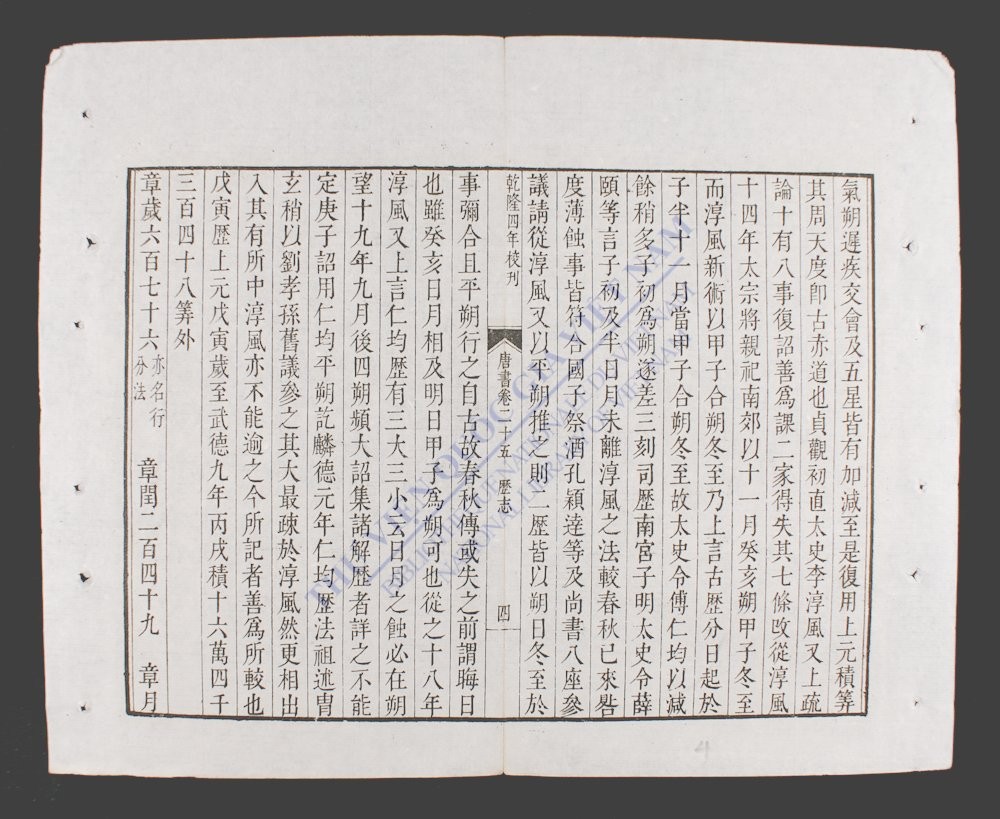 氣朔遲疾交會及五星皆有加減至是復用上元積筭
其周天度卽古赤道也貞觀初直太史李淳風又上疏
論十有八事復詔善爲課二家得失其七條改從淳風
十四年太宗將親祀南郊以十一月癸亥朔甲子冬至
而淳風新術以甲子合朔冬至乃上言古歷分日起於
子半十一月當甲子合朔冬至故太史令傅仁均以減
餘稍多子初爲朔遂差三刻司歷南宮子明太史令薛
頤等言子初及半日月未離淳風之法較春秋已來晷
度薄蝕事皆符合國子祭酒孔穎達等及尚書八座參
議請從淳風又以平朔推之則二歷皆以朔日冬至於
乾隆四年校刊
唐書卷二十五 歷志
四
事彌合且平朔行之自古故春秋傳或失之前謂晦日
也雖癸亥日月相及明日甲子爲朔可也從之十八年
淳風又上言仁均歷有三大三小云日月之蝕必在朔
望十九年九月後四朔頻大詔集諸解歷者詳之不能
定庚子詔用仁均平朔訖麟德元年仁均歷法祖述冑
玄稍以劉孝孫舊議參之其大最疎於淳風然更相出
入其有所中淳風亦不能逾之今所記者善爲所較也
戊寅歷上元戊寅歲至武德九年丙戌積十六萬四千
三百四十八筭外
章歲六百七十六亦名行分法 章閏二百四十九 章月
THƯ VIỆN QUỐC GIA VIỆT NAM
BIBLIOTHÈQUE NATIONALE DU VIETNAM
NATIONAL LIBRARY OF VIETNAM
4